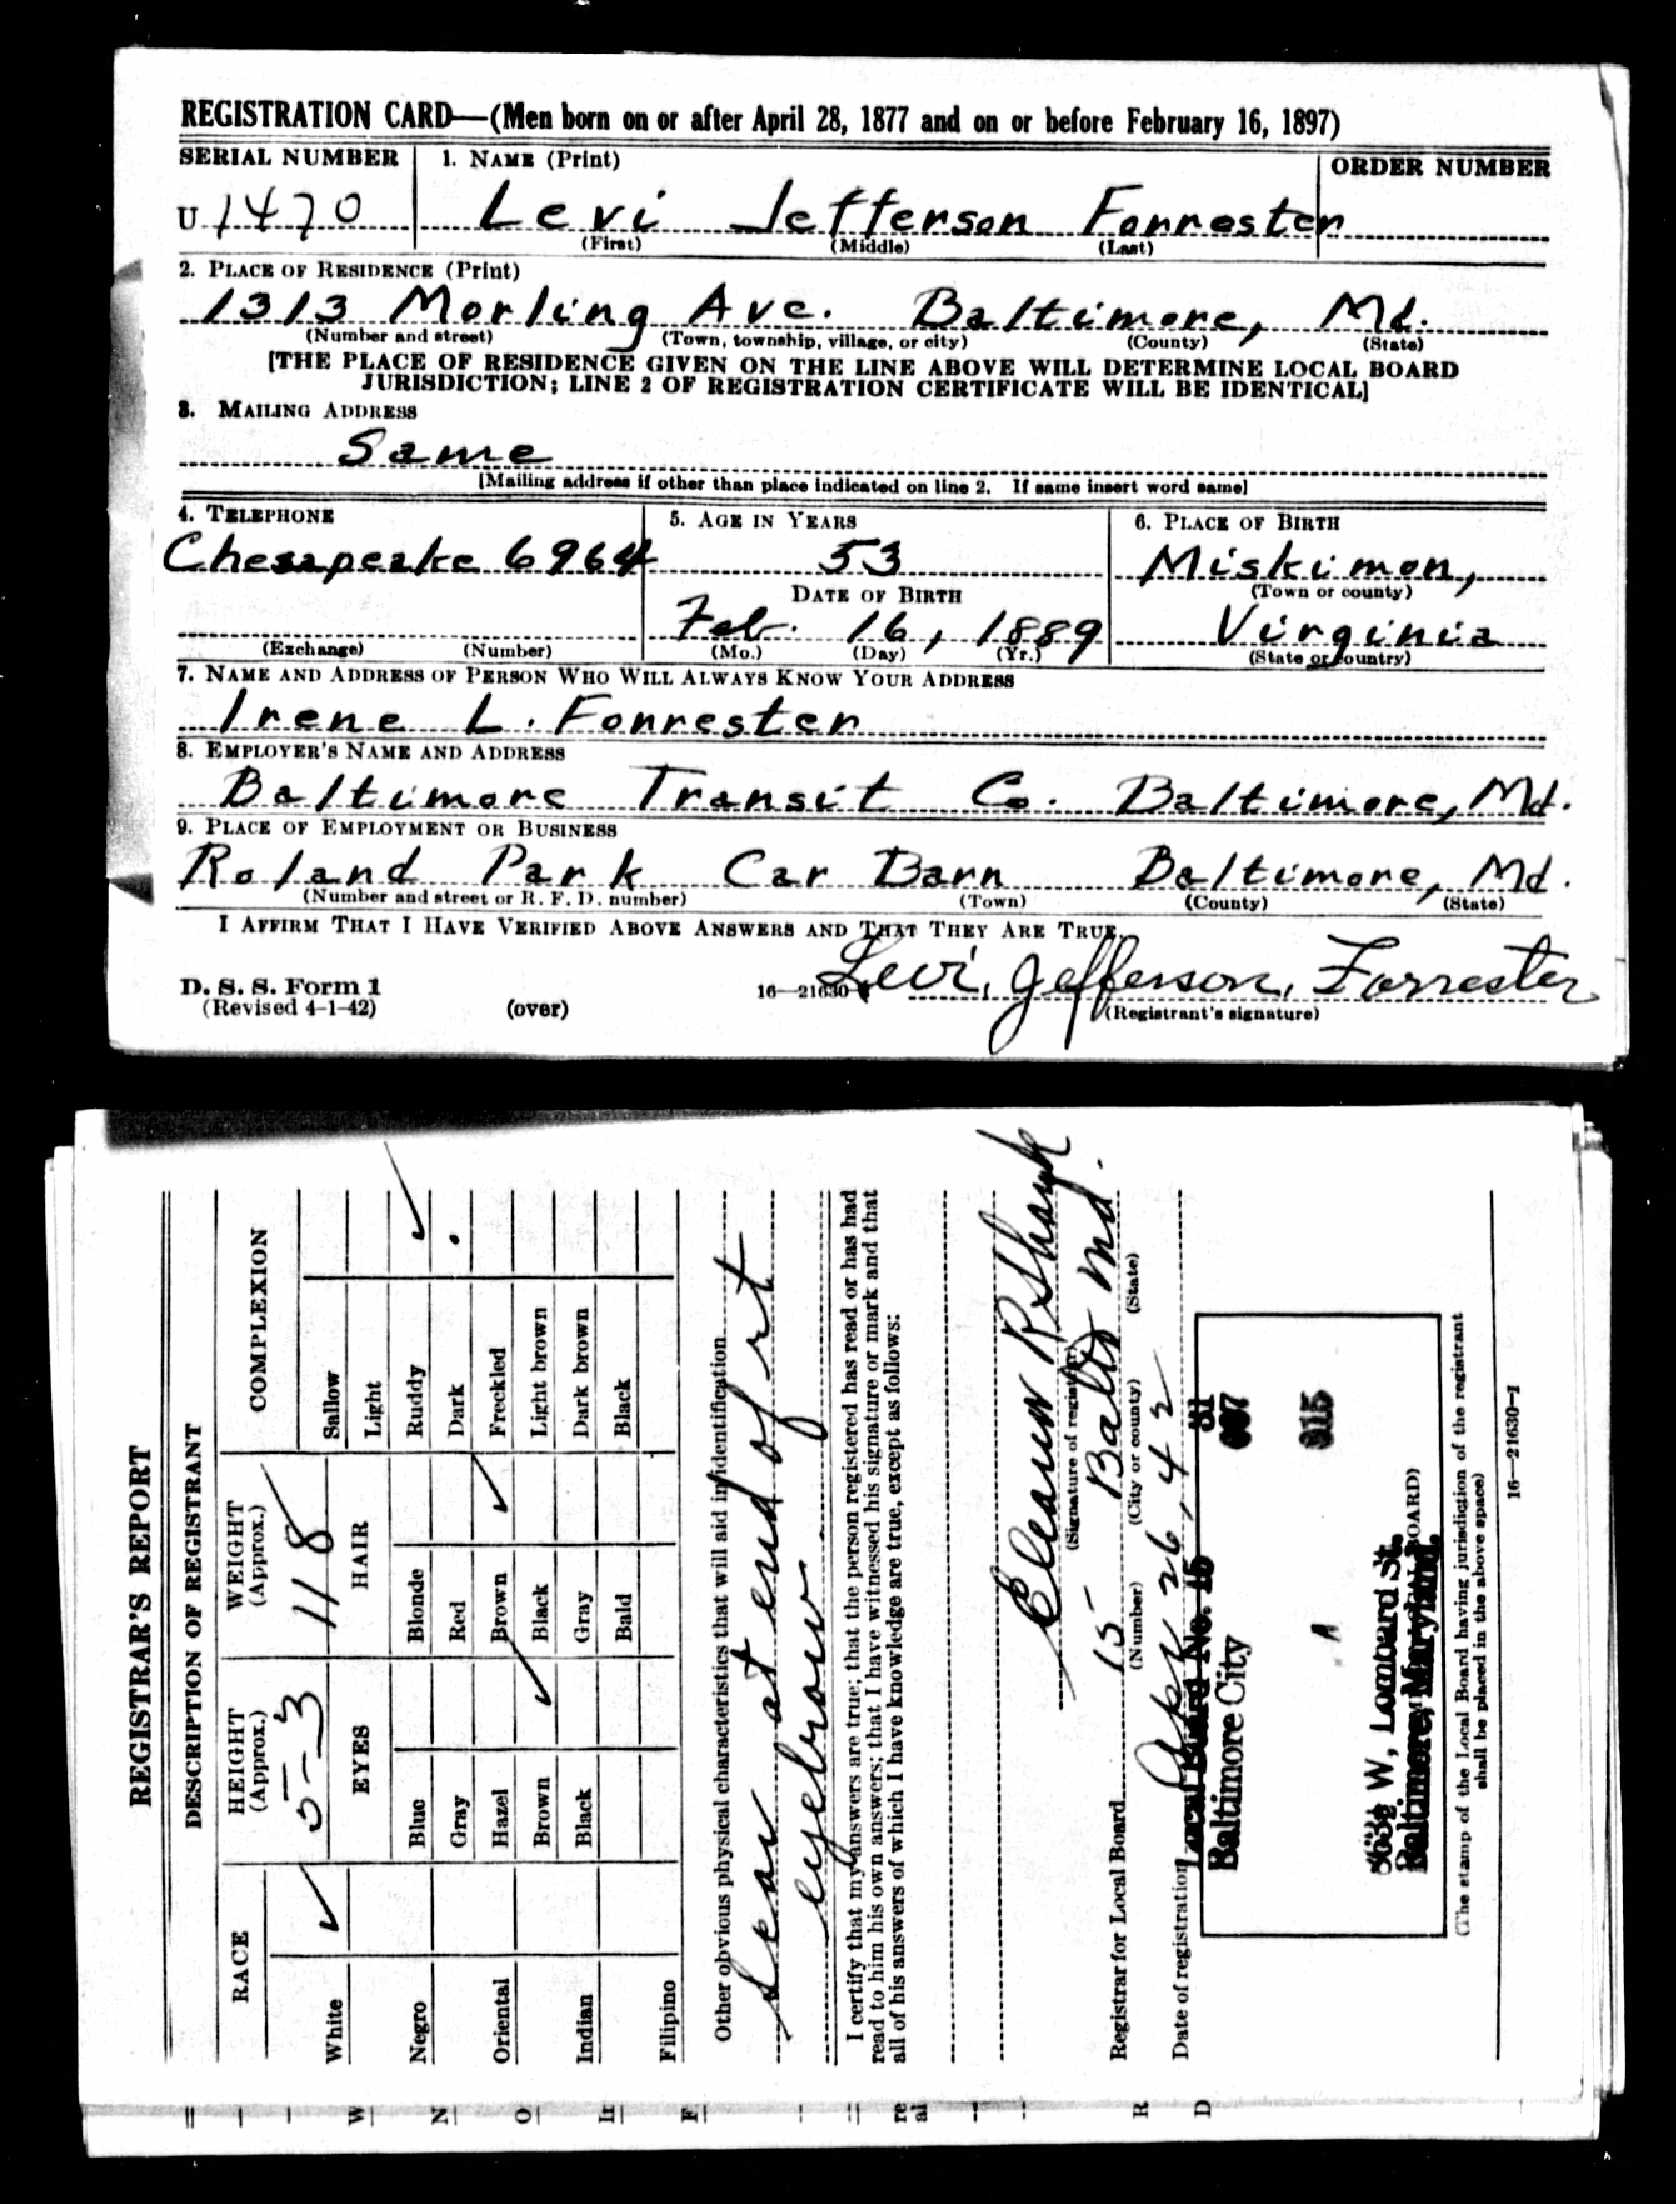 REGISTRATION CARD—(Men born on or after April 28, 1877 and on or before February 16, 1897)
SERIAL NUMBER 1. NAME (Print) ORDER NUMBER
U 1470 Levi Jefferson Forrester
(First) (Middle) (Last)
2. PLACE OF RESIDENCE (Print)
1313 Morling Ave. Baltimore, Md.
(Number and street) (Town, township, village, or city) (County) (State)
[THE PLACE OF RESIDENCE GIVEN ON THE LINE ABOVE WILL DETERMINE LOCAL BOARD
JURISDICTION; LINE 2 OF REGISTRATION CERTIFICATE WILL BE IDENTICAL]
3. MAILING ADDRESS
Same
[Mailing address if other than place indicated on line 2. If same insert word same]
4. TELEPHONE 5. AGE IN YEARS 6. PLACE OF BIRTH
Chesapeake 6964 53 Miskimon,
DATE OF BIRTH (Town or county)
Feb. 16, 1889 Virginia
(Exchange) (Number) (Mo.) (Day) (Yr.) (State or country)
7. NAME AND ADDRESS OF PERSON WHO WILL ALWAYS KNOW YOUR ADDRESS
Irene L. Forrester
8. EMPLOYER'S NAME AND ADDRESS
Baltimore Transit Co. Baltimore, Md.
9. PLACE OF EMPLOYMENT OR BUSINESS
Roland Park Car Barn Baltimore, Md.
(Number and street or R. F. D. number) (Town) (County) (State)
I AFFIRM THAT I HAVE VERIFIED ABOVE ANSWERS AND THAT THEY ARE TRUE.
D. S. S. Form 1
(Revised 4-1-42) (over) 16—21630 Levi, Jefferson, Forrester
(Registrant's signature)
REGISTRAR'S REPORT
DESCRIPTION OF REGISTRANT
RACE HEIGHT (Approx.) WEIGHT (Approx.) COMPLEXION
White ✓ 5-3 118 Sallow
EYES HAIR Light
Negro Blue Blonde Ruddy ✓
Gray Red Dark
Oriental Hazel Brown ✓ Freckled
Brown ✓ Black Light brown
Indian Black Gray Dark brown
Bald Black
Filipino
Other obvious physical characteristics that will aid in identification
Scar at end of rt
eyebrow
I certify that my answers are true; that the person registered has read or has had
read to him his own answers; that I have witnessed his signature or mark and that
all of his answers of which I have knowledge are true, except as follows:
(Signature of registrar)
Registrar for Local Board 15 Balto Md.
(Number) (City or county) (State)
Date of registration Apr 26, 42
Local Board No. 15 31
Baltimore City
315
A
W. Lombard St.
Baltimore, Maryland.
(The stamp of the Local Board having jurisdiction of the registrant
shall be placed in the above space)
16—21630-1
W N O In F re al R D